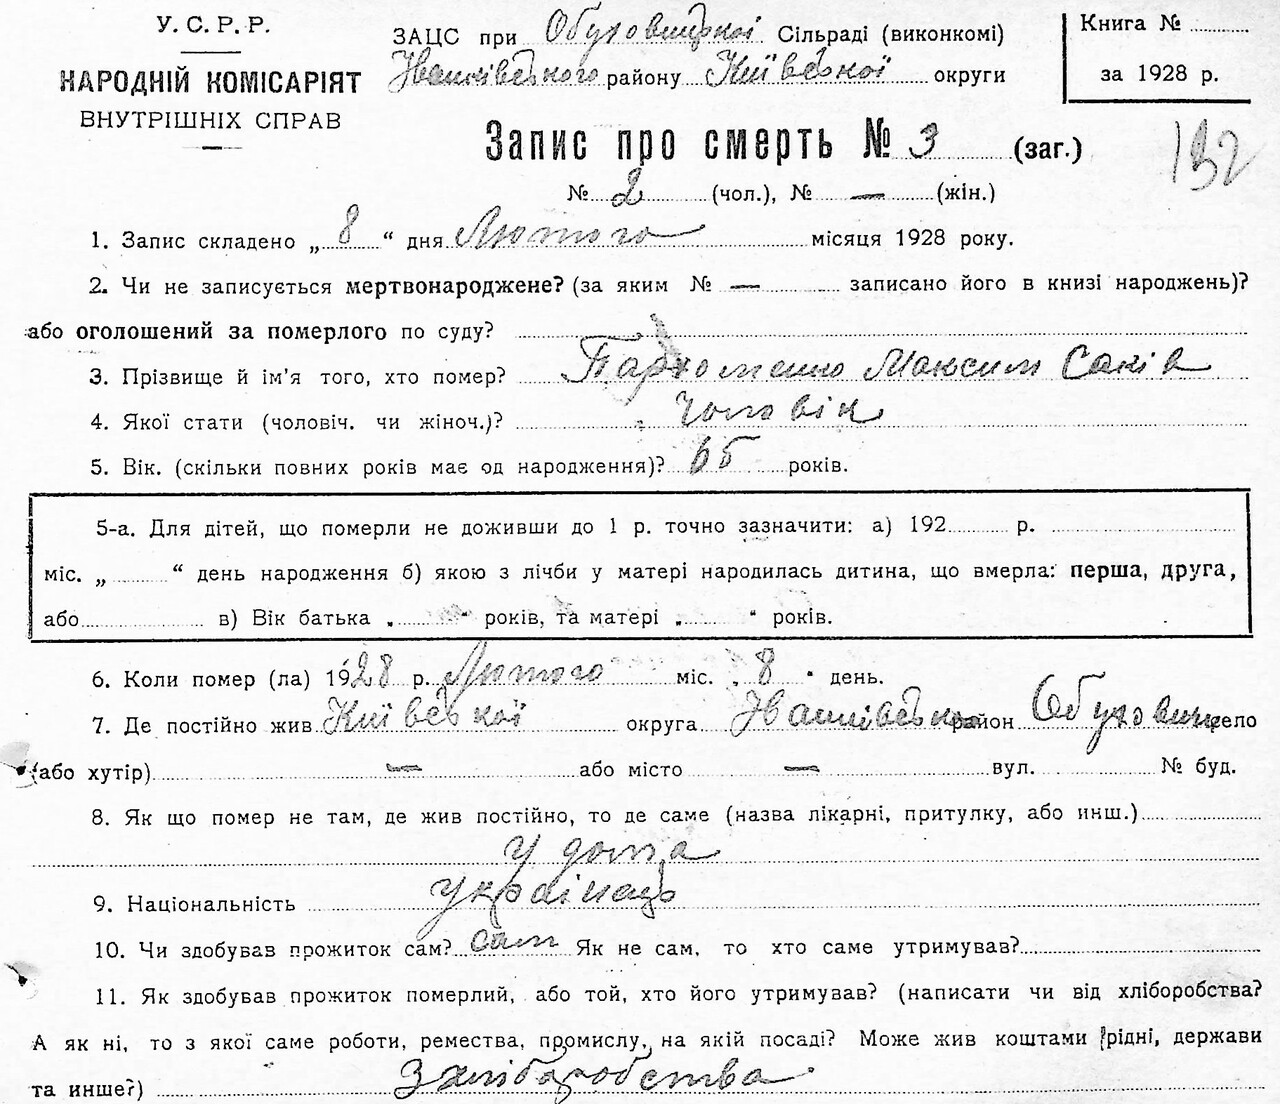 У. С. Р. Р.
НАРОДНІЙ КОМІСАРІЯТ
ВНУТРІШНІХ СПРАВ
ЗАЦС при Обуховицкої Сільраді (виконкомі)
Іванківського району Київської округи
Книга №
за 1928 р.
Запис про смерть № 3 (заг.)
132
№ 2 (чол.), № — (жін.)
1. Запис складено „ 8 “ дня Лютого місяця 1928 року.
2. Чи не записується мертвонароджене? (за яким № — записано його в книзі народжень)?
або оголошений за померлого по суду?
3. Прізвище й ім'я того, хто помер? Пархоменко Максим Саків
4. Якої стати (чоловіч. чи жіноч.)? Чоловік
5. Вік. (скільки повних років має од народження)? 65 років.
5-а. Для дітей, що померли не доживши до 1 р. точно зазначити: а) 192 р.
міс. „ “ день народження б) якою з лічби у матері народилась дитина, що вмерла: перша, друга,
або в) Вік батька „ “ років, та матері „ “ років.
6. Коли помер (ла) 1928 р. Лютого міс. „ 8 “ день.
7. Де постійно жив Київської округа Іванківсько район Обуховичи село
(або хутір) — або місто — вул. № буд.
8. Як що помер не там, де жив постійно, то де саме (назва лікарні, притулку, або инш.)
У дома
9. Національність українець
10. Чи здобував прожиток сам? Сам Як не сам, то хто саме утримував?
11. Як здобував прожиток померлий, або той, хто його утримував? (написати чи від хліборобства?
А як ні, то з якої саме роботи, ремества, промислу, на якій посаді? Може жив коштами рідні, держави
та инше?) З хліборобства